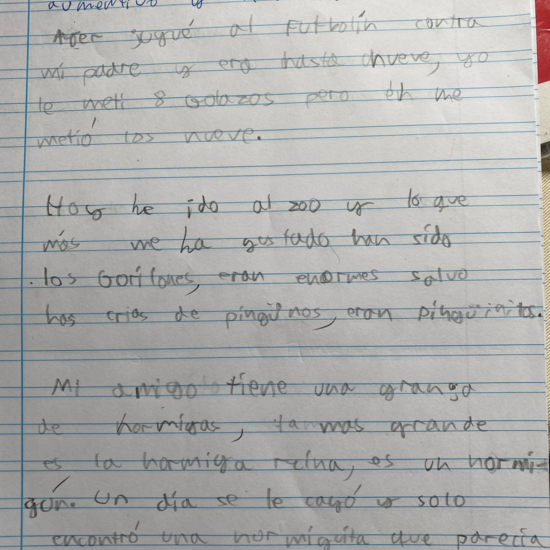 aumentivo y
Ayer jugué al Futbolín contra
mi padre y era hasta nueve, yo
le metí 8 Golazos pero él me
metió los nueve.
Hoy he ido al zoo y lo que
más me ha gustado han sido
los Gorilones, eran enormes salvo
las crías de pingüinos, eran pingüinitos.
Mi amigo tiene una granga
de hormigas, la mas grande
es la hormiga reina, es un hormi-
gón. Un día se le cayó y solo
encontró una hormiguita que parecía